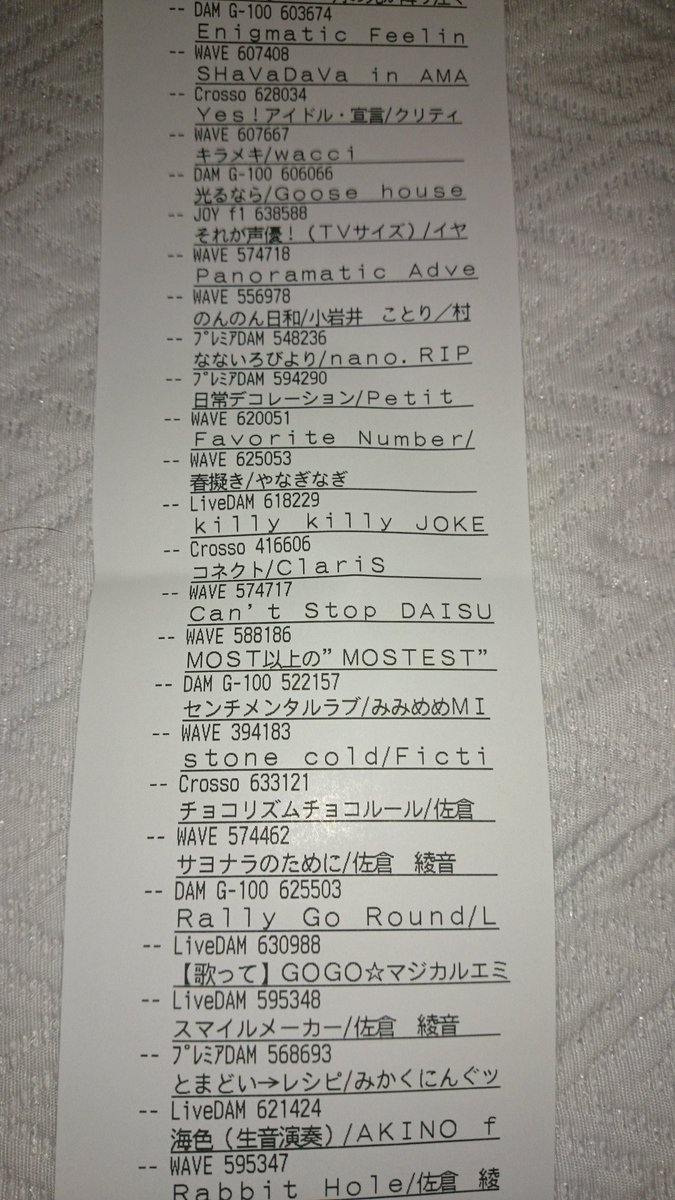 -- DAM G-100 603674
Enigmatic Feelin
-- WAVE 607408
SHaVaDaVa in AMA
-- Crosso 628034
Yes！アイドル・宣言/クリティ
-- WAVE 607667
キラメキ/wacci
-- DAM G-100 606066
光るなら/Goose house
-- JOY f1 638588
それが声優！（TVサイズ）/イヤ
-- WAVE 574718
Panoramatic Adve
-- WAVE 556978
のんのん日和/小岩井　ことり／村
-- ﾌﾟﾚﾐｱDAM 548236
なないろびより/nano.RIP
-- ﾌﾟﾚﾐｱDAM 594290
日常デコレーション/Petit
-- WAVE 620051
Favorite Number/
-- WAVE 625053
春擬き/やなぎなぎ
-- LiveDAM 618229
killy killy JOKE
-- Crosso 416606
コネクト/ClariS
-- WAVE 574717
Can't Stop DAISU
-- WAVE 588186
MOST以上の”MOSTEST”
-- DAM G-100 522157
センチメンタルラブ/みみめめMI
-- WAVE 394183
stone cold/Ficti
-- Crosso 633121
チョコリズムチョコルール/佐倉
-- WAVE 574462
サヨナラのために/佐倉　綾音
-- DAM G-100 625503
Rally Go Round/L
-- LiveDAM 630988
【歌って】GOGO☆マジカルエミ
-- LiveDAM 595348
スマイルメーカー/佐倉　綾音
-- ﾌﾟﾚﾐｱDAM 568693
とまどい→レシピ/みかくにんぐッ
-- LiveDAM 621424
海色（生音演奏）/AKINO f
-- WAVE 595347
Rabbit Hole/佐倉　綾